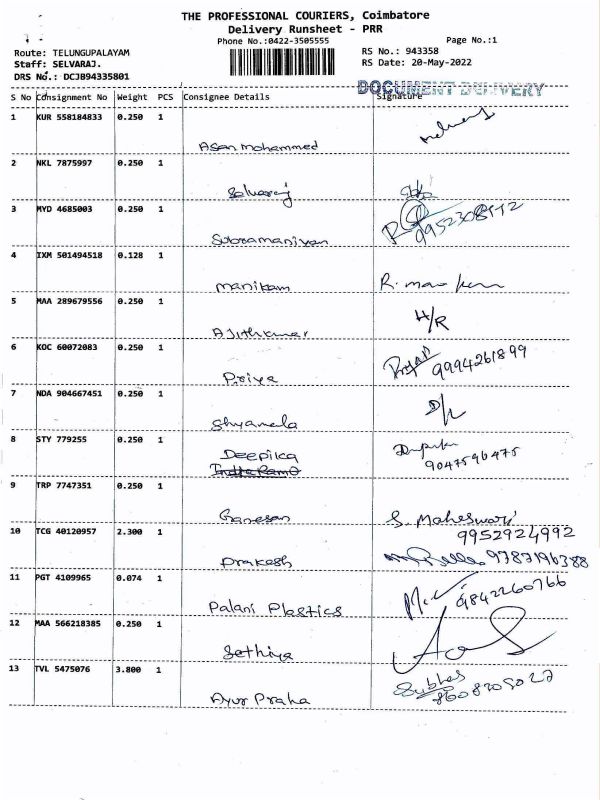 THE PROFESSIONAL COURIERS, Coimbatore
Delivery Runsheet - PRR
Phone No.:0422-3505555
Page No.:1
Route: TELUNGUPALAYAM
RS No.: 943358
Staff: SELVARAJ.
RS Date: 20-May-2022
DRS No.: DCJB94335801
DOCUMENT DELIVERY
S No Consignment No Weight PCS Consignee Details Signature
1 KUR 558184833 0.250 1
Asan Mohammed
2 NKL 7875997 0.250 1
Selvaraj
3 MYD 4685003 0.250 1
Subramaniyan
4 IXM 501494518 0.128 1
Manikam R.
5 MAA 289679556 0.250 1
Ajithkumar H/R
6 KOC 60072083 0.250 1
Priya 9994261899
7 NDA 904667451 0.250 1
Shyamala D/L
8 STY 779255 0.250 1
Deepika
9047596475
9 TRP 7747351 0.250 1
Ganesan S. Maheswari
9952924992
10 TCG 40120957 2.300 1
Prakesh 9787196388
11 PGT 4109965 0.074 1
Palani Plastics 9842260766
12 MAA 566218385 0.250 1
Sethiya
13 TVL 5475076 3.800 1
Subhas
Ayur Praha